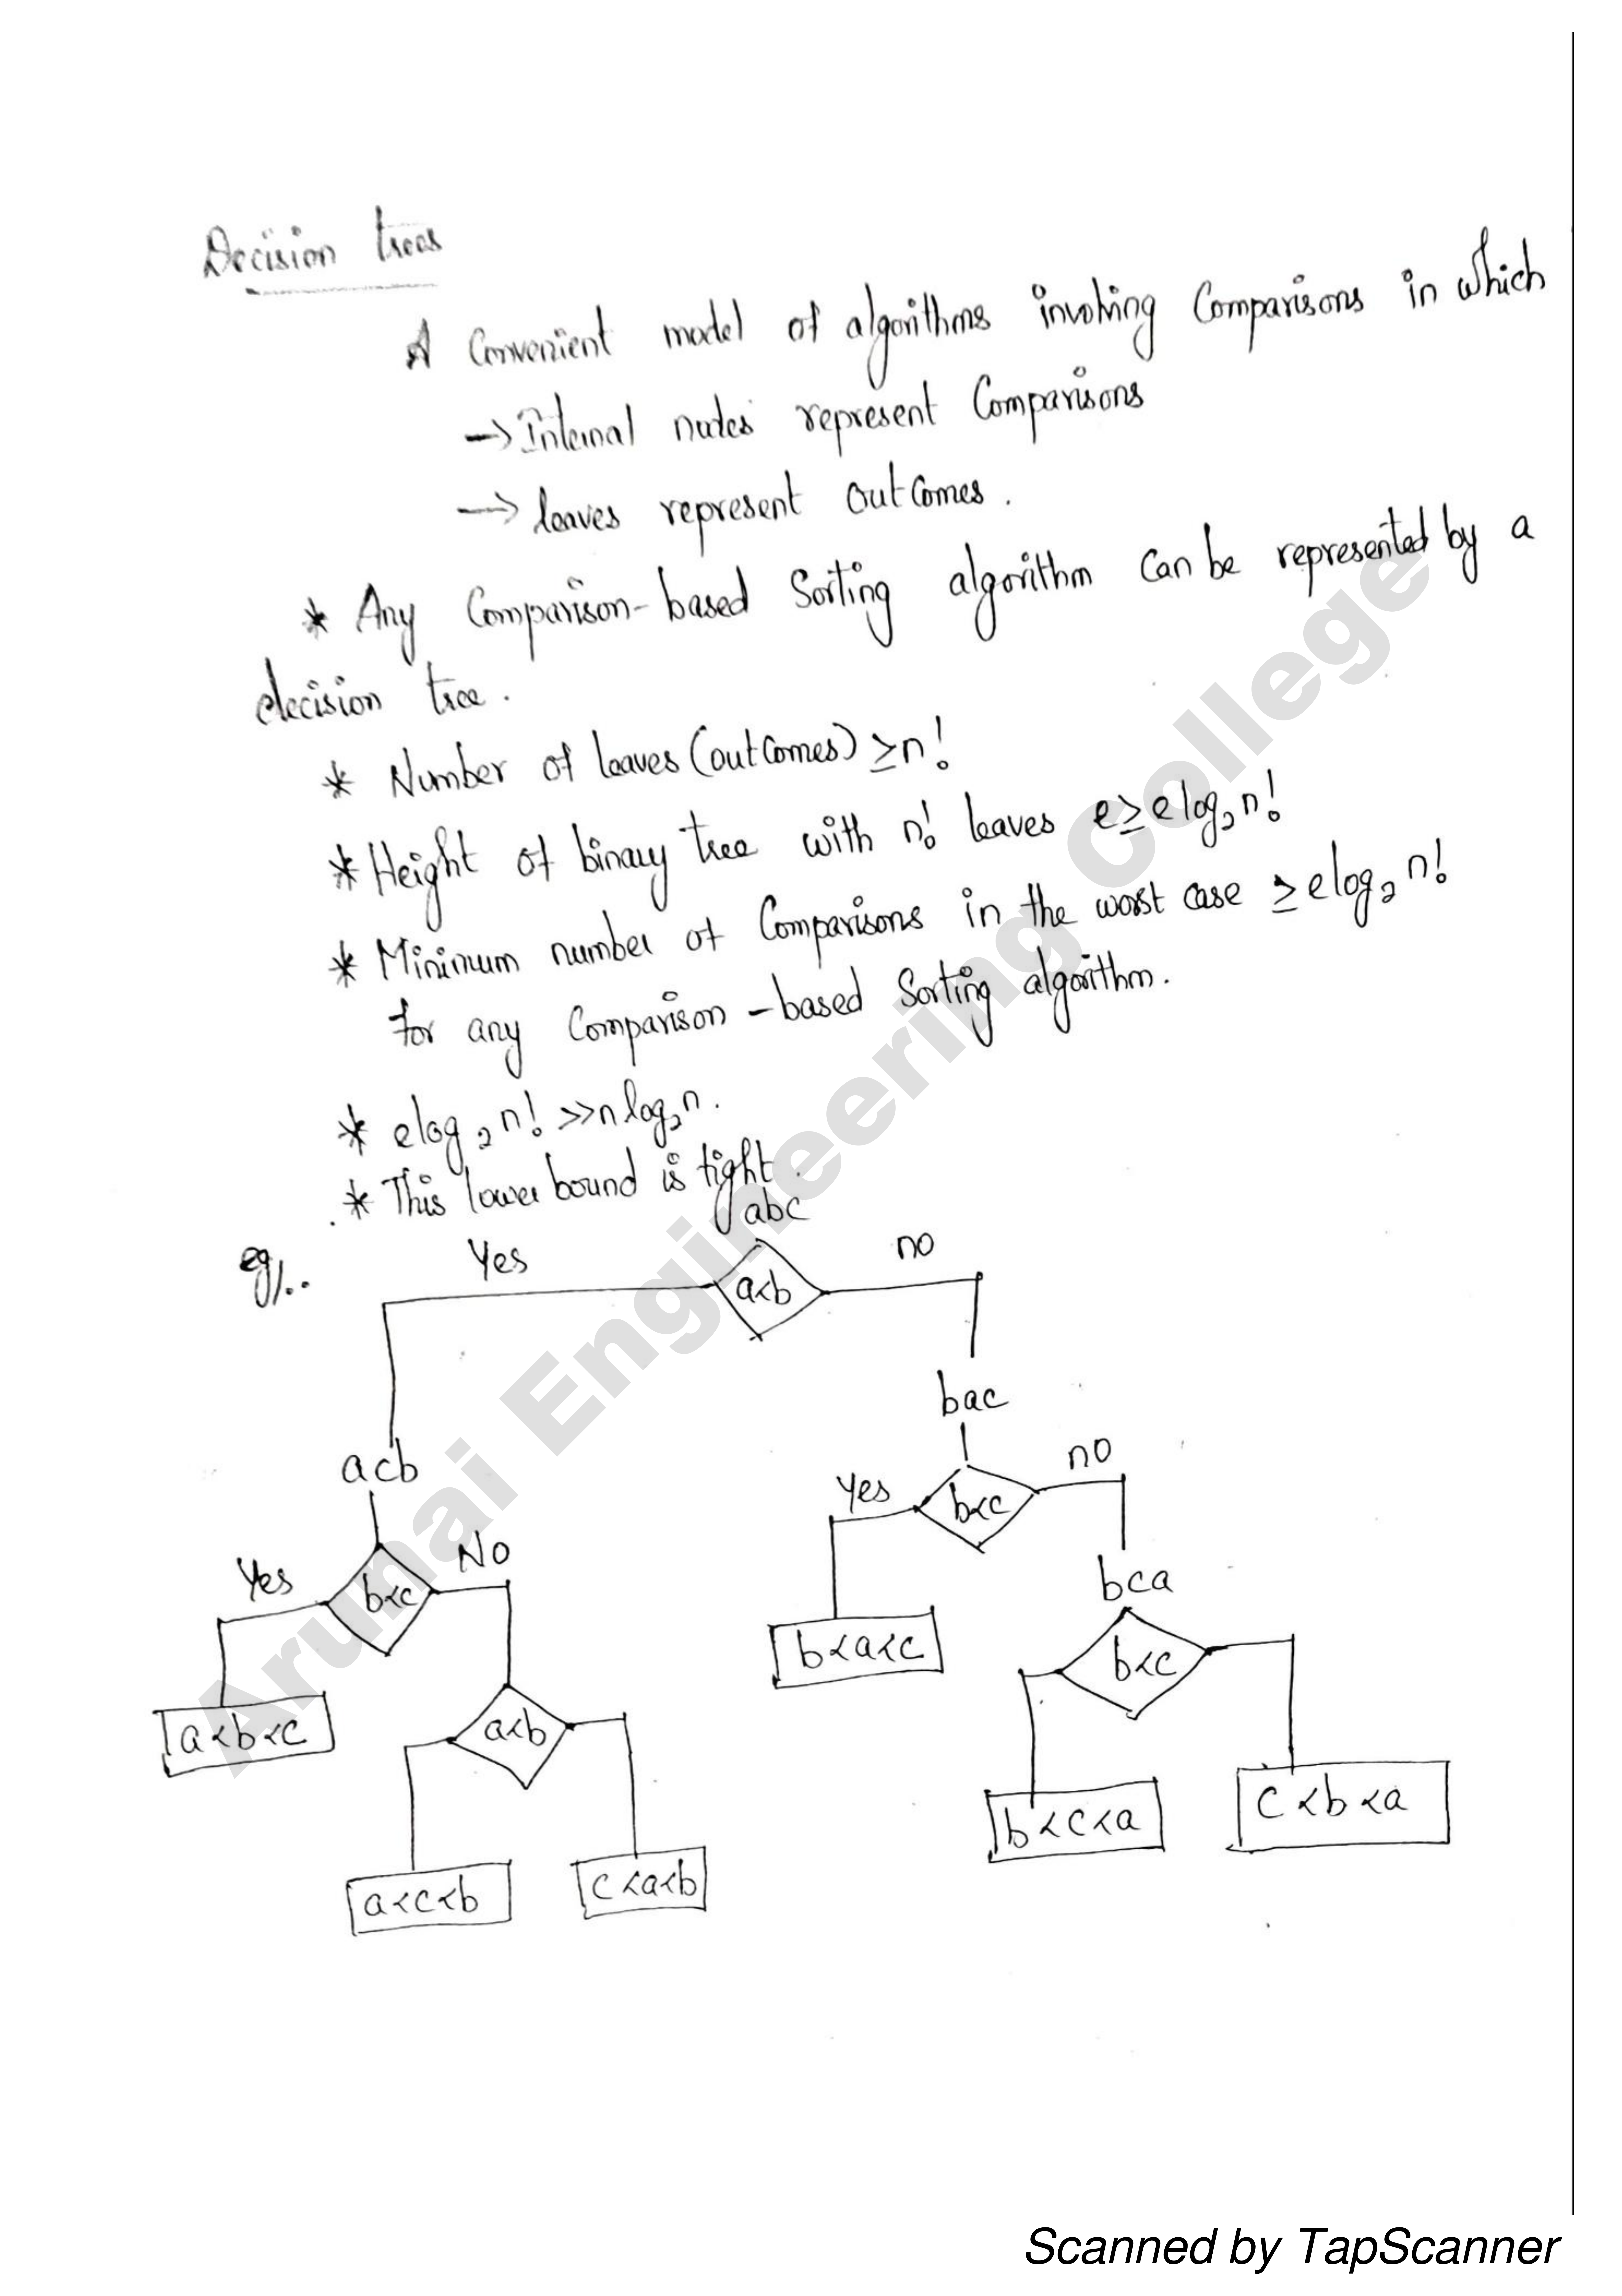 Decision trees
A Convenient model of algorithms involving Comparisons in which
→ Internal nodes represent Comparisons
→ leaves represent outComes.
* Any Comparison-based Sorting algorithm can be represented by a
decision tree.
* Number of leaves (outComes) ≥ n!
* Height of binary tree with n! leaves e ≥ elog₂n!
* Minimum number of Comparisons in the worst case ≥ elog₂ n!
for any Comparison-based Sorting algorithm.
* elog₂ n! >> n log₂n.
* This lower bound is tight.
abc
eg)..
Yes
a<b
no
bac
acb
Yes
b<c
no
Yes
b<c
No
bca
b<a<c
b<c
a<b<c
a<b
b<c<a
c<b<a
a<c<b
c<a<b
Arunai Engineering College
Scanned by TapScanner